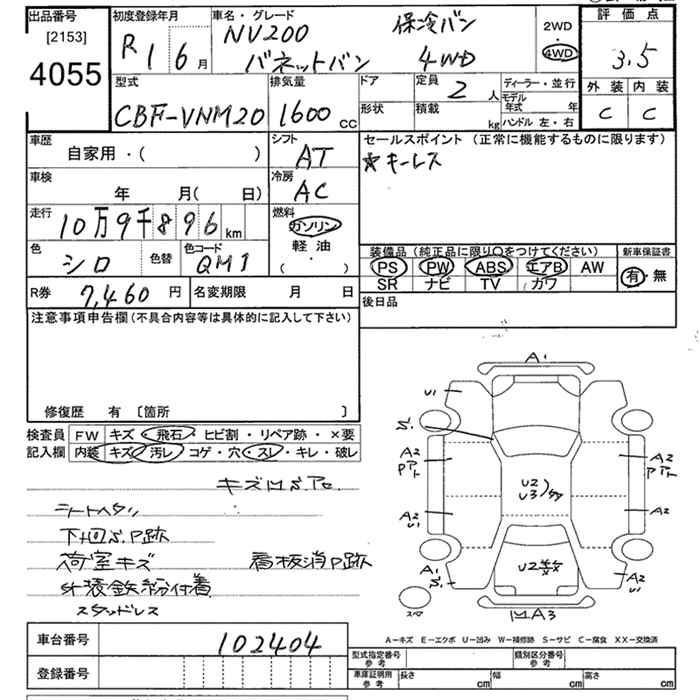 出品番号
[2153]
4055
初度登録年月
R 1 6 月
車名・グレード
NV200 保冷バン
バネットバン 4WD
2WD
4WD
評価点
3.5
外装 内装
C C
型式
CBF-VNM20
排気量
1600 CC
ドア
形状
定員 2 人
積載 kg
ディーラー・並行
モデル年式 年
ハンドル 左・右
車歴
自家用・( )
シフト
AT
セールスポイント (正常に機能するものに限ります)
☆キーレス
車検
年 月( 日)
冷房
AC
走行
10万9千896 km
燃料
ガソリン
軽油
( ・ )
色
シロ
色替
色コード
QM1
装備品 (純正品に限り○をつけてください)
新車保証書
PS PW ABS エアB AW
SR ナビ TV カワ
有・無
R券 7,460 円
名変期限 月 日
後日品
注意事項申告欄(不具合内容等は具体的に記入して下さい)
修復歴 有 [箇所 ]
検査員記入欄
FW キズ・飛石・ヒビ割・リペア跡・×要
内装 キズ・汚レ・コゲ・穴・スレ・キレ・破レ
シートヘタリ
荷室キズ 看板消P跡
外装鉄粉付着
スタッドレス
A1
U1
A2
Pアト
A2
U1
U2
U3
A2
Pアト
A2
A1
U2
A2
U1
A3
スマ
A-キズ E-エクボ U-凹み W-補修跡 S-サビ C-腐食 XX-交換済
車台番号 102404
登録番号
型式指定番号
参考
類別区分番号
参考
車庫証明用
参考
長さ cm 幅 cm 高さ cm